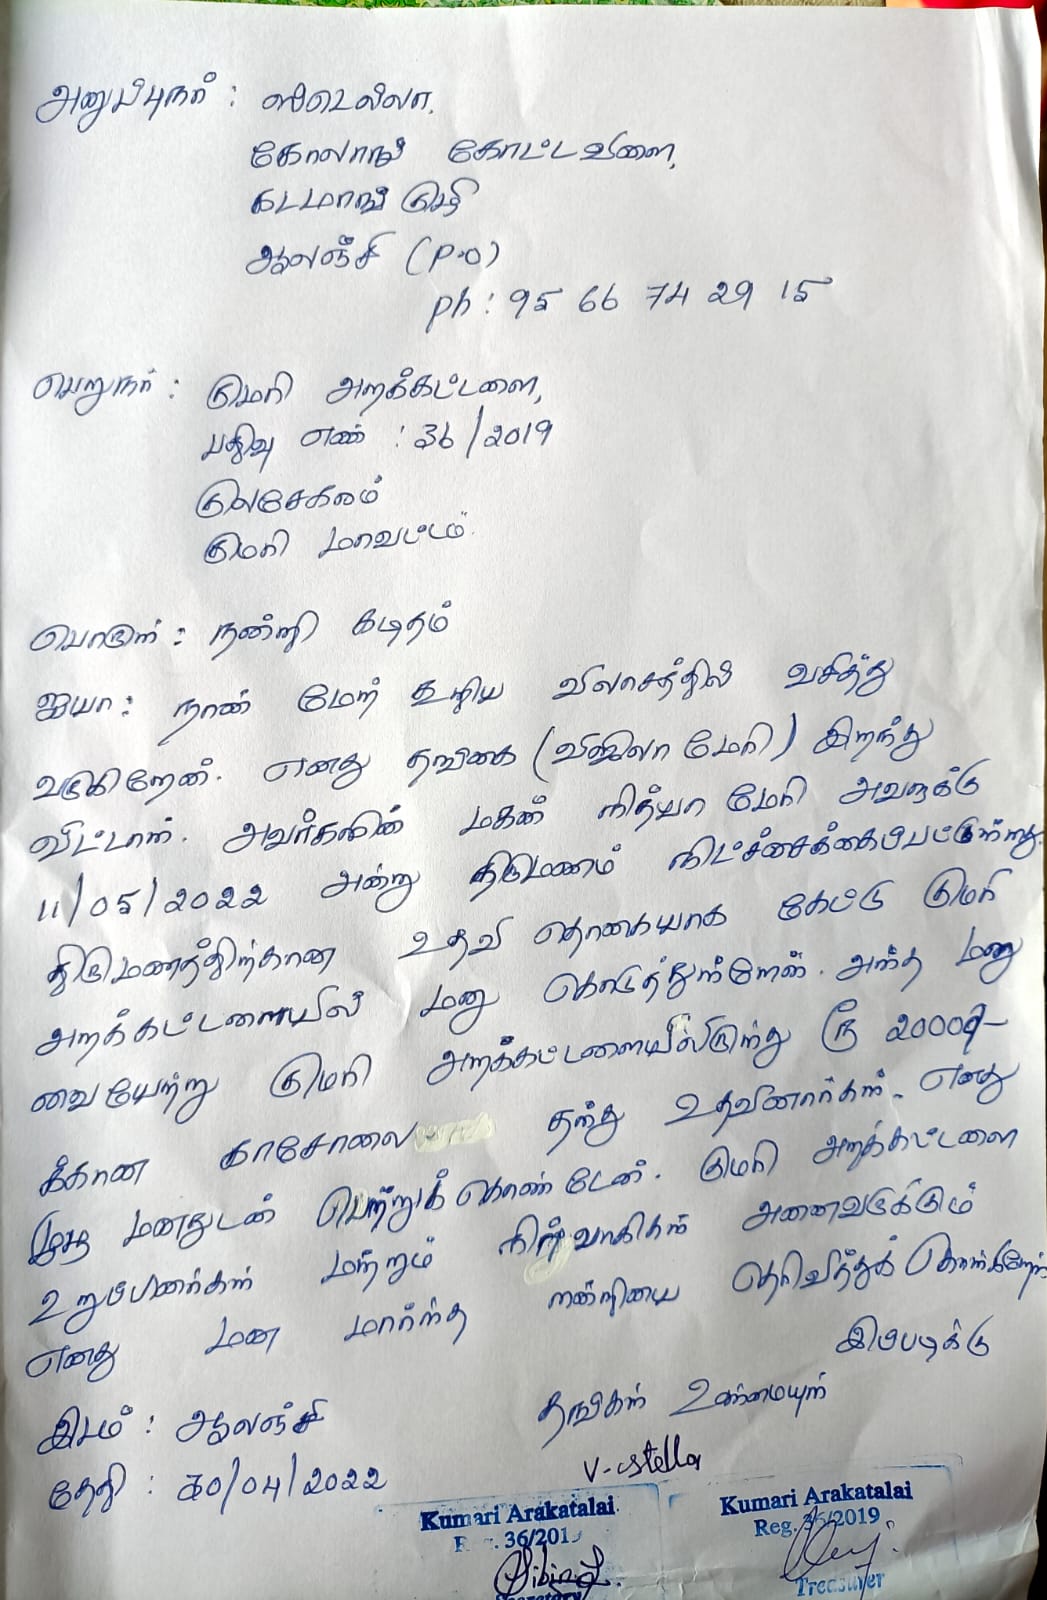 அனுப்புநர் : ஸ்டெல்லா,
கோலாங் கோட்டவிளை,
கடமாங் குழி
ஆலஞ்சி (P.O)
ph : 95 66 74 29 15
பெறுநர் : குமரி அறக்கட்டளை,
பதிவு எண் : 36/2019
குலசேகரம்
குமரி மாவட்டம்.
பொருள் : நன்றி கடிதம்
ஐயா : நான் மேற் கூறிய விலாசத்தில் வசித்து
வருகிறேன். எனது தங்கை (விஜிலா மேரி) இறந்து
விட்டாள். அவர்களின் மகள் நித்யா மேரி அவளுக்கு
11/05/2022 அன்று திருமணம் நிட்ச்சைக்கைப்பட்டுள்ளது.
திருமணத்திற்கான உதவி தொகையாக கேட்டு குமரி
அறக்கட்டளையில் மனு கொடுத்துள்ளேன். அந்த மனு
வையேற்று குமரி அறக்கட்டளையிலிருந்து ரூ 20000/-
க்கான காசோலை தந்து உதவினார்கள். எனது
முழு மனதுடன் பெற்றுக் கொண்டேன். குமரி அறக்கட்டளை
உறுப்பினர்கள் மற்றும் நிர்வாகிகள் அனைவருக்கும்
எனது மன மார்ந்த நன்றியை தெரிவித்துக் கொள்கிறேன்
இப்படிக்கு
இடம் : ஆலஞ்சி தங்கள் உண்மையுள்
தேதி : 30/04/2022 V-stella
Kumari Arakatalai Kumari Arakatalai
Reg. 36/2019 Reg. 36/2019
Secretary Treasurer